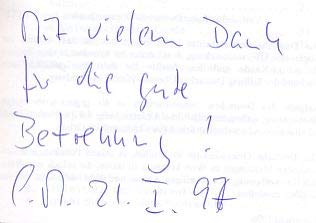 Mit vielem Dank
für die gute
Betreuung !
P.M. 21. I. 97